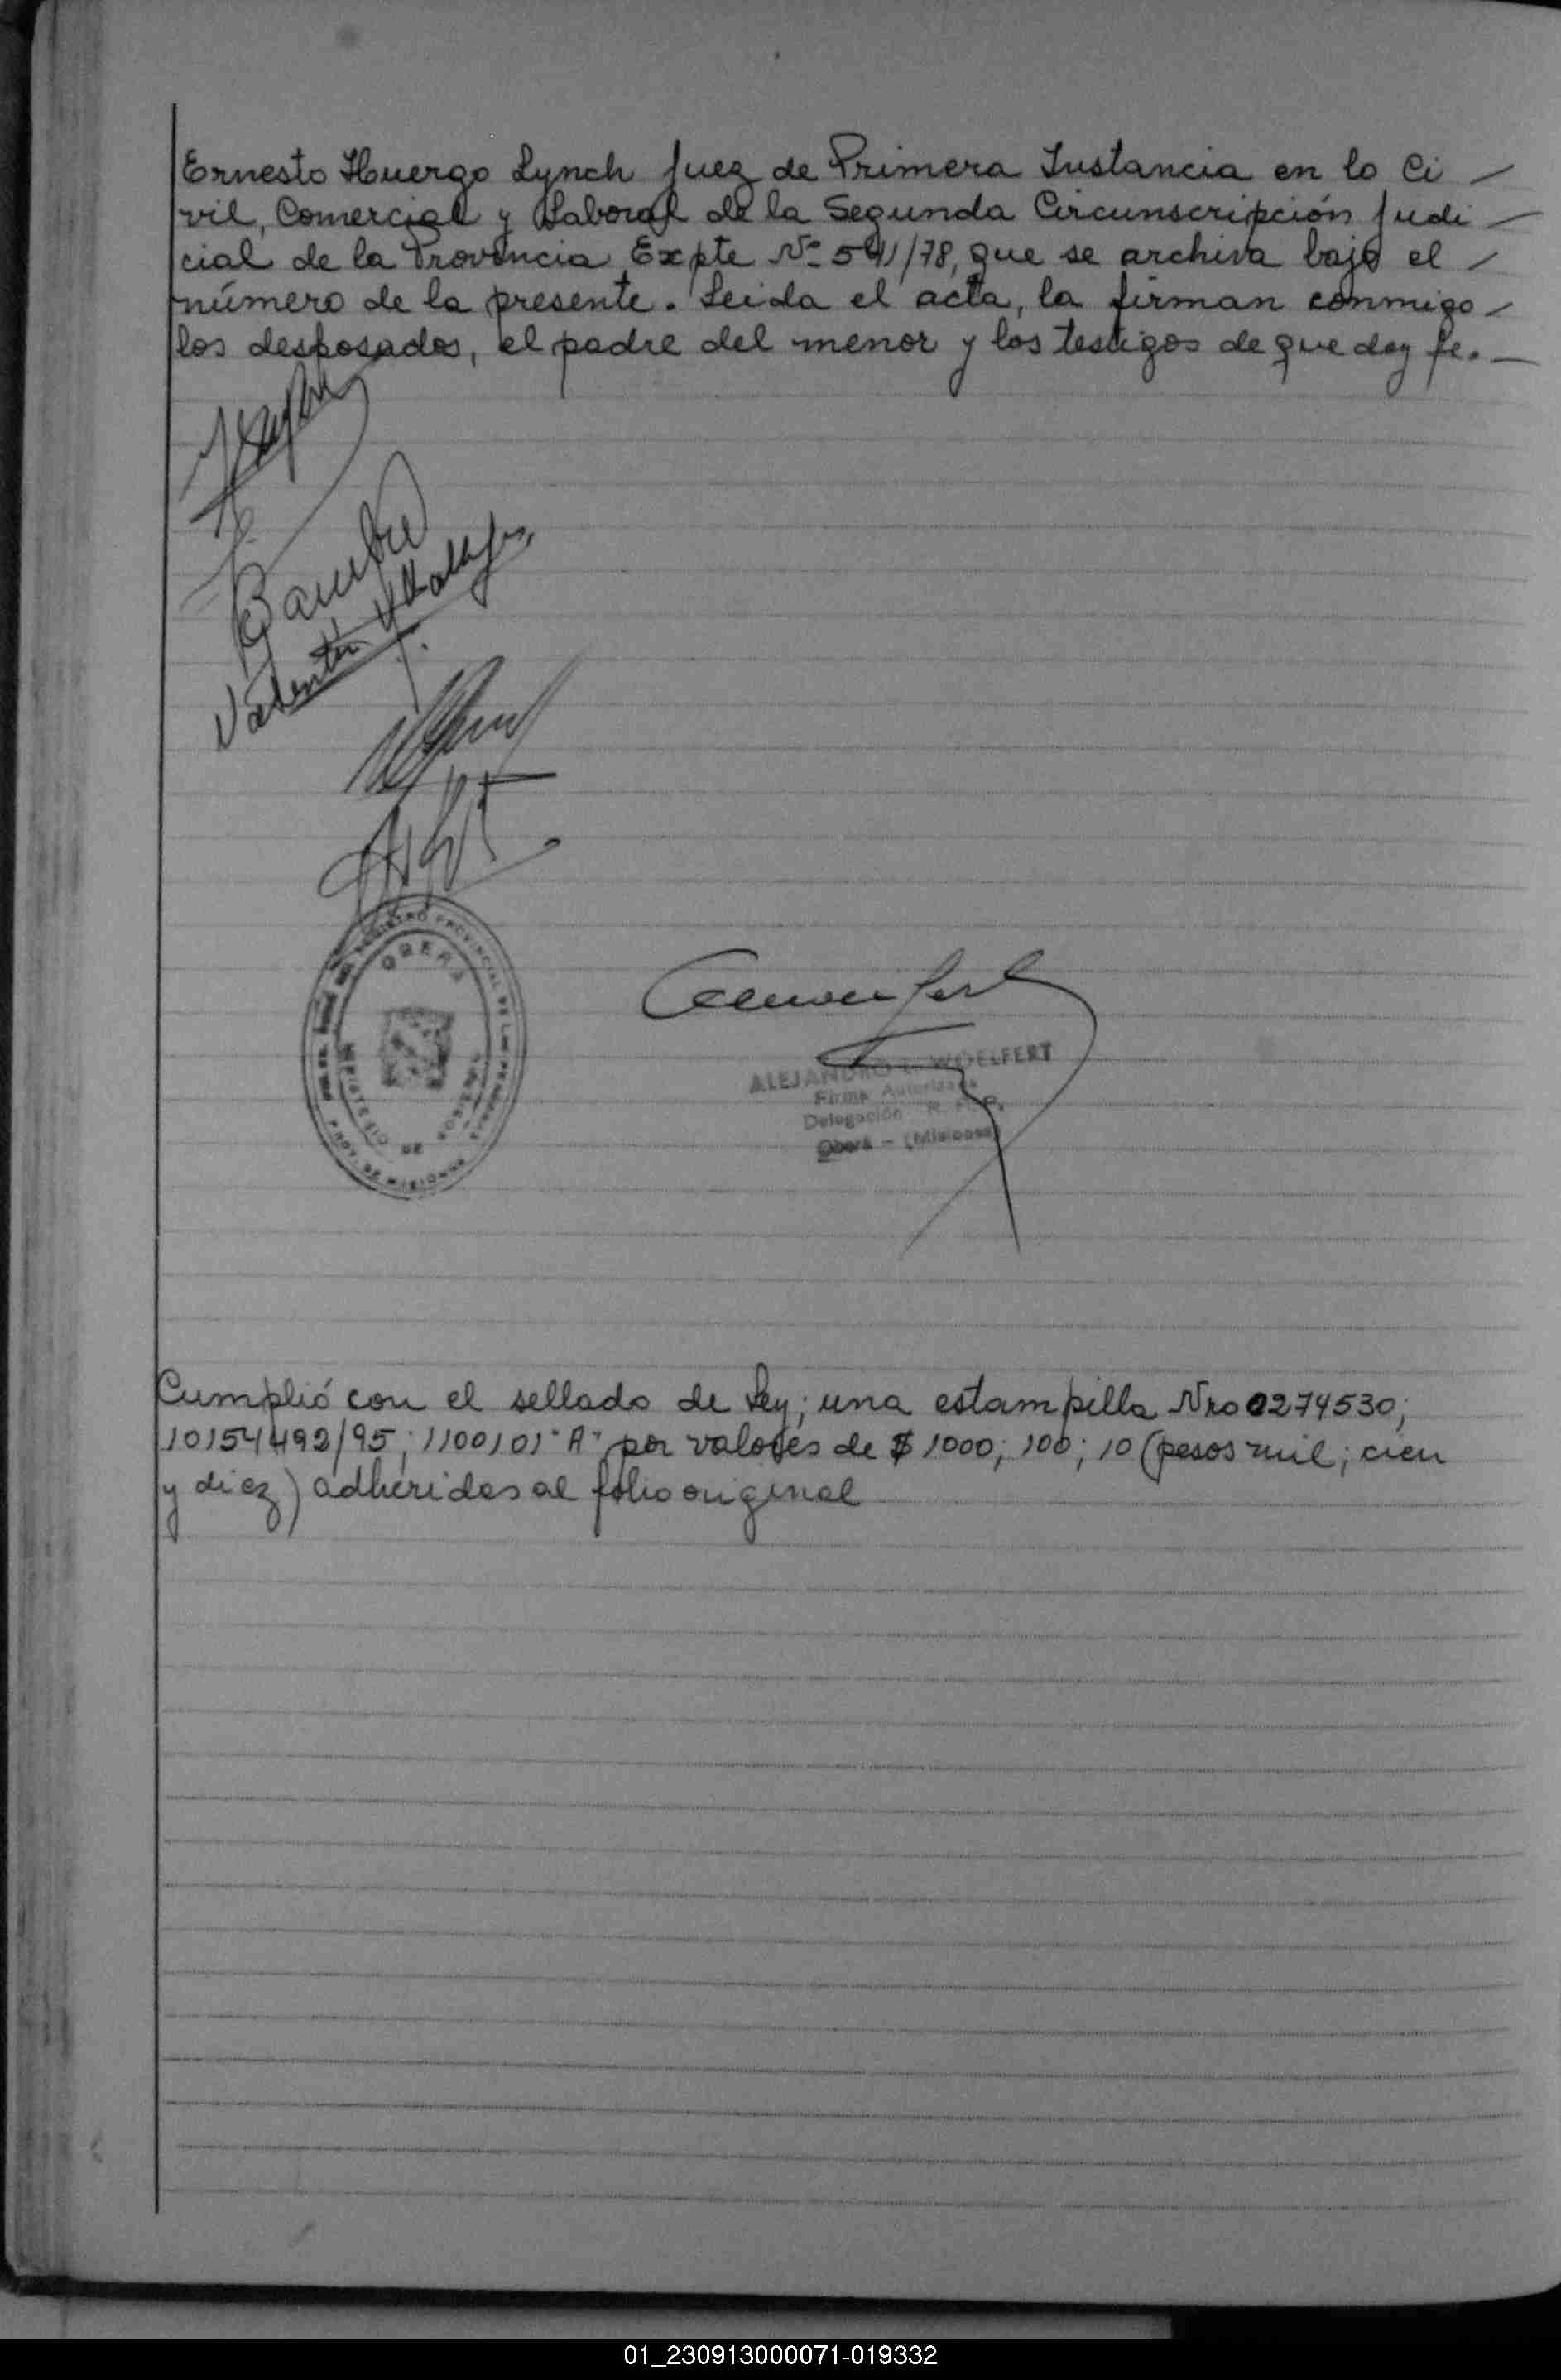 Ernesto Huergo Lynch Juez de Primera Instancia en lo Ci
vil, Comercial y Laboral de la Segunda Circunscripción Judi
cial de la Provincia Expte Nº 541/78, que se archiva bajo el
número de la presente. Leida el acta, la firman conmigo
los desposados, el padre del menor y los testigos de que doy fe.
Valentín
OBERA
ALEJANDRO L. WOELFERT
Firma Autorizada
Delegación R. P. P.
Oberá - (Misiones)
Cumplió con el sellado de Ley; una estampilla Nro 0274530;
10154492/95; 1100101 "A" por valores de $ 1000; 100; 10 (pesos mil; cien
y diez) adheridas al folio original
01_230913000071-019332